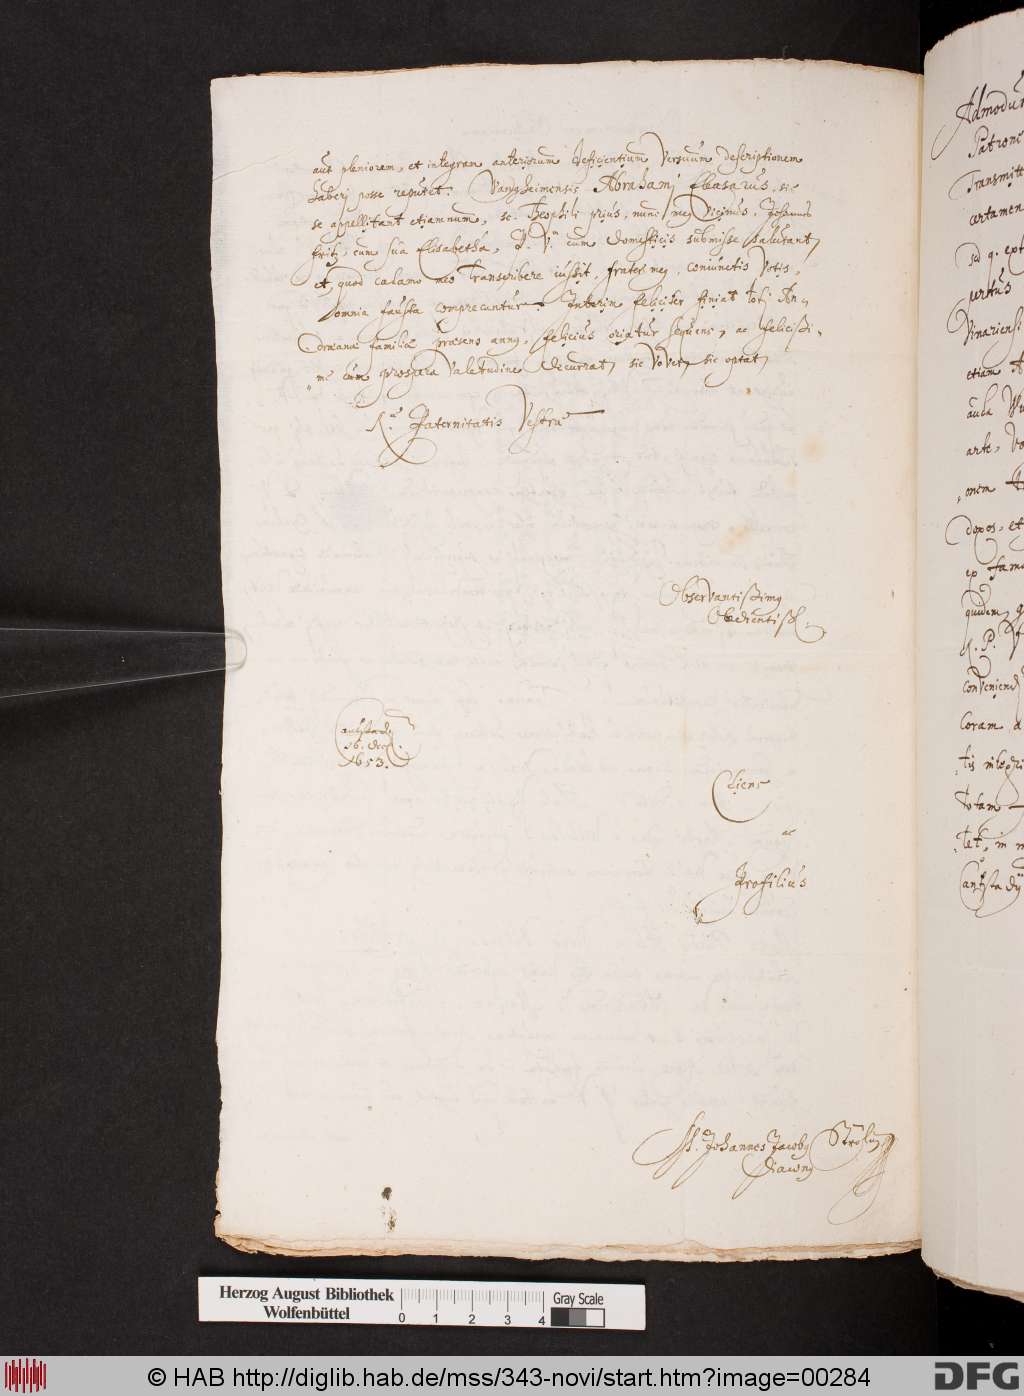 aut pleniorem, et integram anteriorum deficientium Versuum descriptionem
haberi posse reputet. Abrahamj Eleasarus, sic
se appellitant etiamnum, sc. Theophili prius, nunc me Vicinus, Johannes
fritz, cum suâ Elisabethâ, P. V. cum domesticis submisse salutant,
et, quod calamo meo transcribere iussit, frater meus, coniunctis Votis,
omnia fausta comprecantur. Interim feliciter finiat toti An-
dreanae familiae praesens annus, felicius oriatur sequens, ac felicissi-
me cum prospera Valetudine decurrat, sic Vovet, sic optat,
R.ae Paternitatis Vestrae
Observantissimus
Obedientiss.
16. dec.
1653.
Cliens
ac
Profilius
M. Johannes Jacobus
Diaconus
Admodum
Patrono
Transmitt
certamen
sed q. ext
peritus
Vimariensi
etiam A
aula Wu
arte, Vo
onem
et
ex fam
quidem,
R. P. V
convenien
Coram a
tis integri
totam
tet, in m
Herzog August Bibliothek
Wolfenbüttel
0 1 2 3 4
Gray Scale
© HAB http://diglib.hab.de/mss/343-novi/start.htm?image=00284
DFG